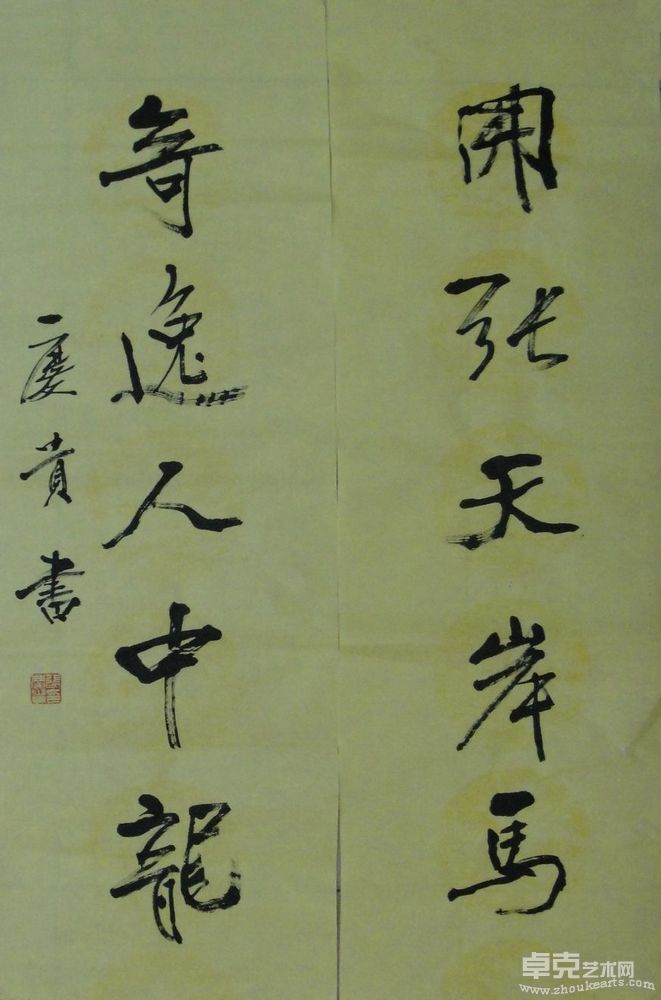 開張天岸馬
奇逸人中龍
慶貴書
卓克艺术网
www.zhoukearts.com